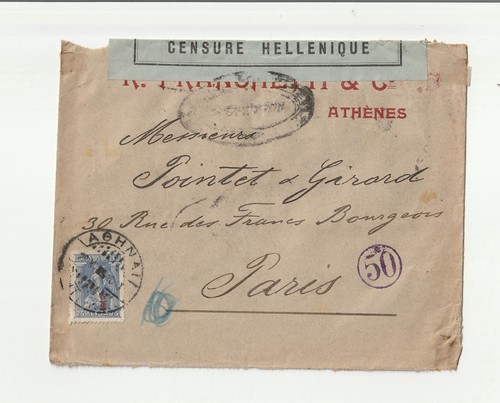 CENSURE HELLENIQUE
R. FRANCHETTI & Cie
ATHÈNES
Messieurs
Pointet & Girard
30 Rue des Francs Bourgeois
Paris
50
ΑΘΗΝΑΙ